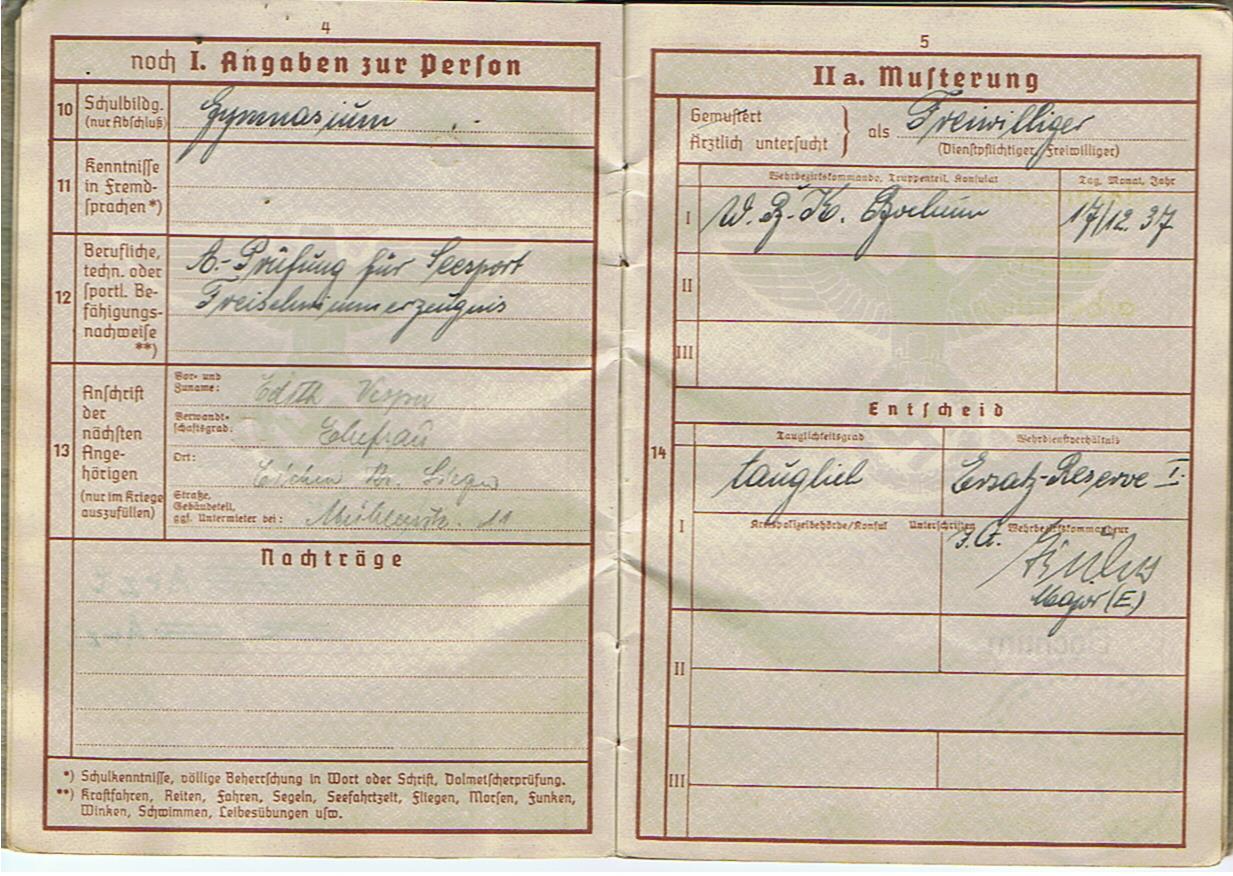 4
noch I. Angaben zur Person
10 Schulbildg. (nur Abschluß) Gymnasium
11 Kenntnisse in Fremd-
sprachen *)
12 Berufliche, techn. oder sportl. Be-
fähigungs-
nachweise **)
A.-Prüfung für Seesport
Freischwimmerzeugnis
13 Anschrift der nächsten Ange-
hörigen
(nur im Kriege auszufüllen)
Vor- und Zuname: Edith
Verwandt-
schaftsgrad: Ehefrau
Ort: Eichen Kr. Siegen
Straße, Gebäudeteil, ggf. Untermieter bei: Mühlenstr. 11
Nachträge
*) Schulkenntnisse, völlige Beherrschung in Wort oder Schrift, Dolmetscherprüfung.
**) Kraftfahren, Reiten, Fahren, Segeln, Seefahrtzeit, Fliegen, Morsen, Funken,
Winken, Schwimmen, Leibesübungen usw.
5
II a. Musterung
Gemustert
Ärztlich untersucht } als Freiwilliger
(Dienstpflichtiger, Freiwilliger)
Wehrbezirkskommando, Truppenteil, Konsulat Tag, Monat, Jahr
I W. B. K. Bochum 17/12. 37
II
III
Entscheid
14
Tauglichkeitsgrad Wehrdienstverhältnis
tauglich Ersatz-Reserve I.
I Kreispolizeibehörde/Konsul Unterschriften Wehrbezirkskommandeur
J.A.
Major (E)
II
III